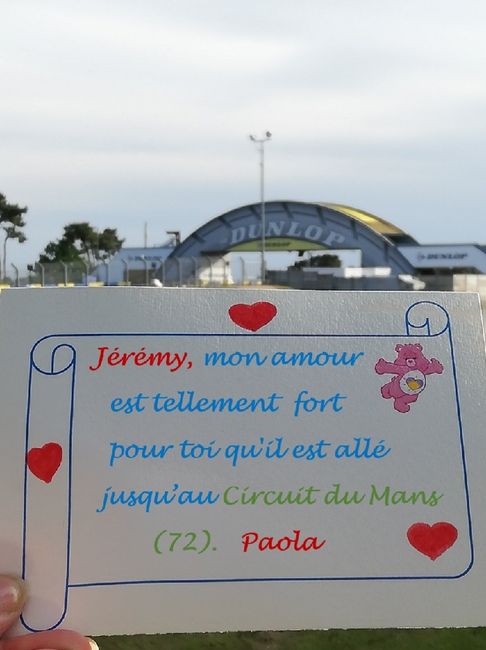 DUNLOP
DUNLOP
Jérémy, mon amour
est tellement fort
pour toi qu'il est allé
jusqu'au Circuit du Mans
(72). Paola